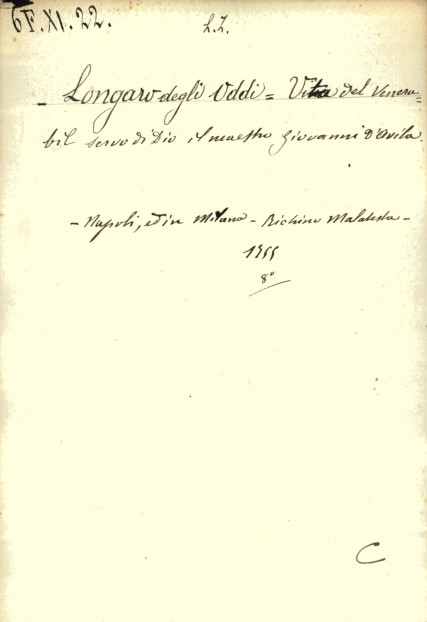 6F.XI.22.
L.Z.
- Longaro degli Oddi = Vita del Venera=
bil servo di Dio il maestro Giovanni D'Avila.
- Napoli, ed in Milano - Richino Malatesta -
1755
8°
C